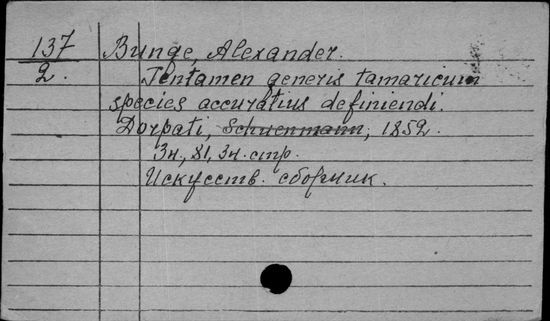 137
2.
Bunge, Alexander.
Tentamen generis tamaricum
species accuratius definiendi.
Dorpati, Schuenmann, 1852.
3н., 81, 3н. стр.
Искусств. сборник.